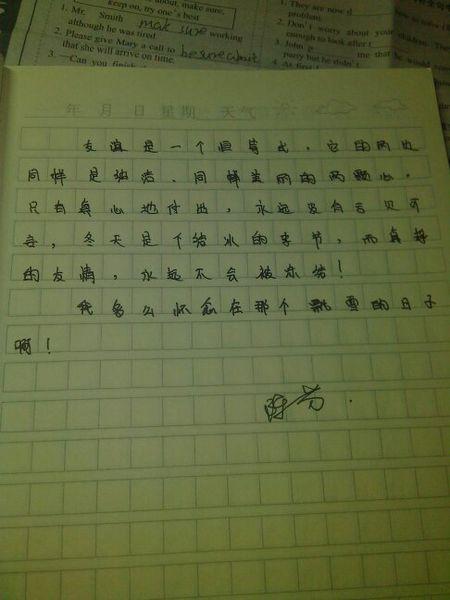 keep on, try one's best
1. Mr. Smith mak sure working
although he was tired
2. Please give Mary a call to be sure about
that she will arrive on time.
3. —Can you finish
1. They are now d
problem.
2. Don't worry about your children.
enough to look after t
3. John p me that he would
party but he didn't
4. At first
年 月 日 星期 天气
友谊是一个恒等式,它的两边
同样是纯洁、同样美丽的两颗心,
只有真心地付出,永远没有可
弃,冬天是个结冰的季节,而真挚
的友情,永远不会被冻结!
我多么怀念在那个飘雪的日子
啊!